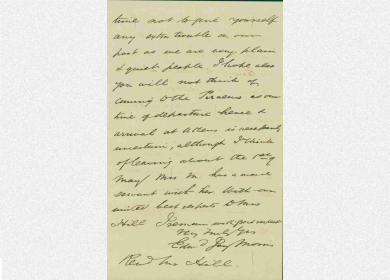 time not to give yourself
any extra trouble on our
part as we are very plain
& quiet people. I hope also
you will not think of
coming to the Piraeus as our
time of departure hence &
arrival at Athens is necessarily
uncertain, although I think
of leaving about the 1st of
May Mrs M. has a maid
servant with her. With our
united best respects to Mrs
Hill I remain with great respect
very truly yrs
Edw'd Joy Morris
Revd Mr Hill